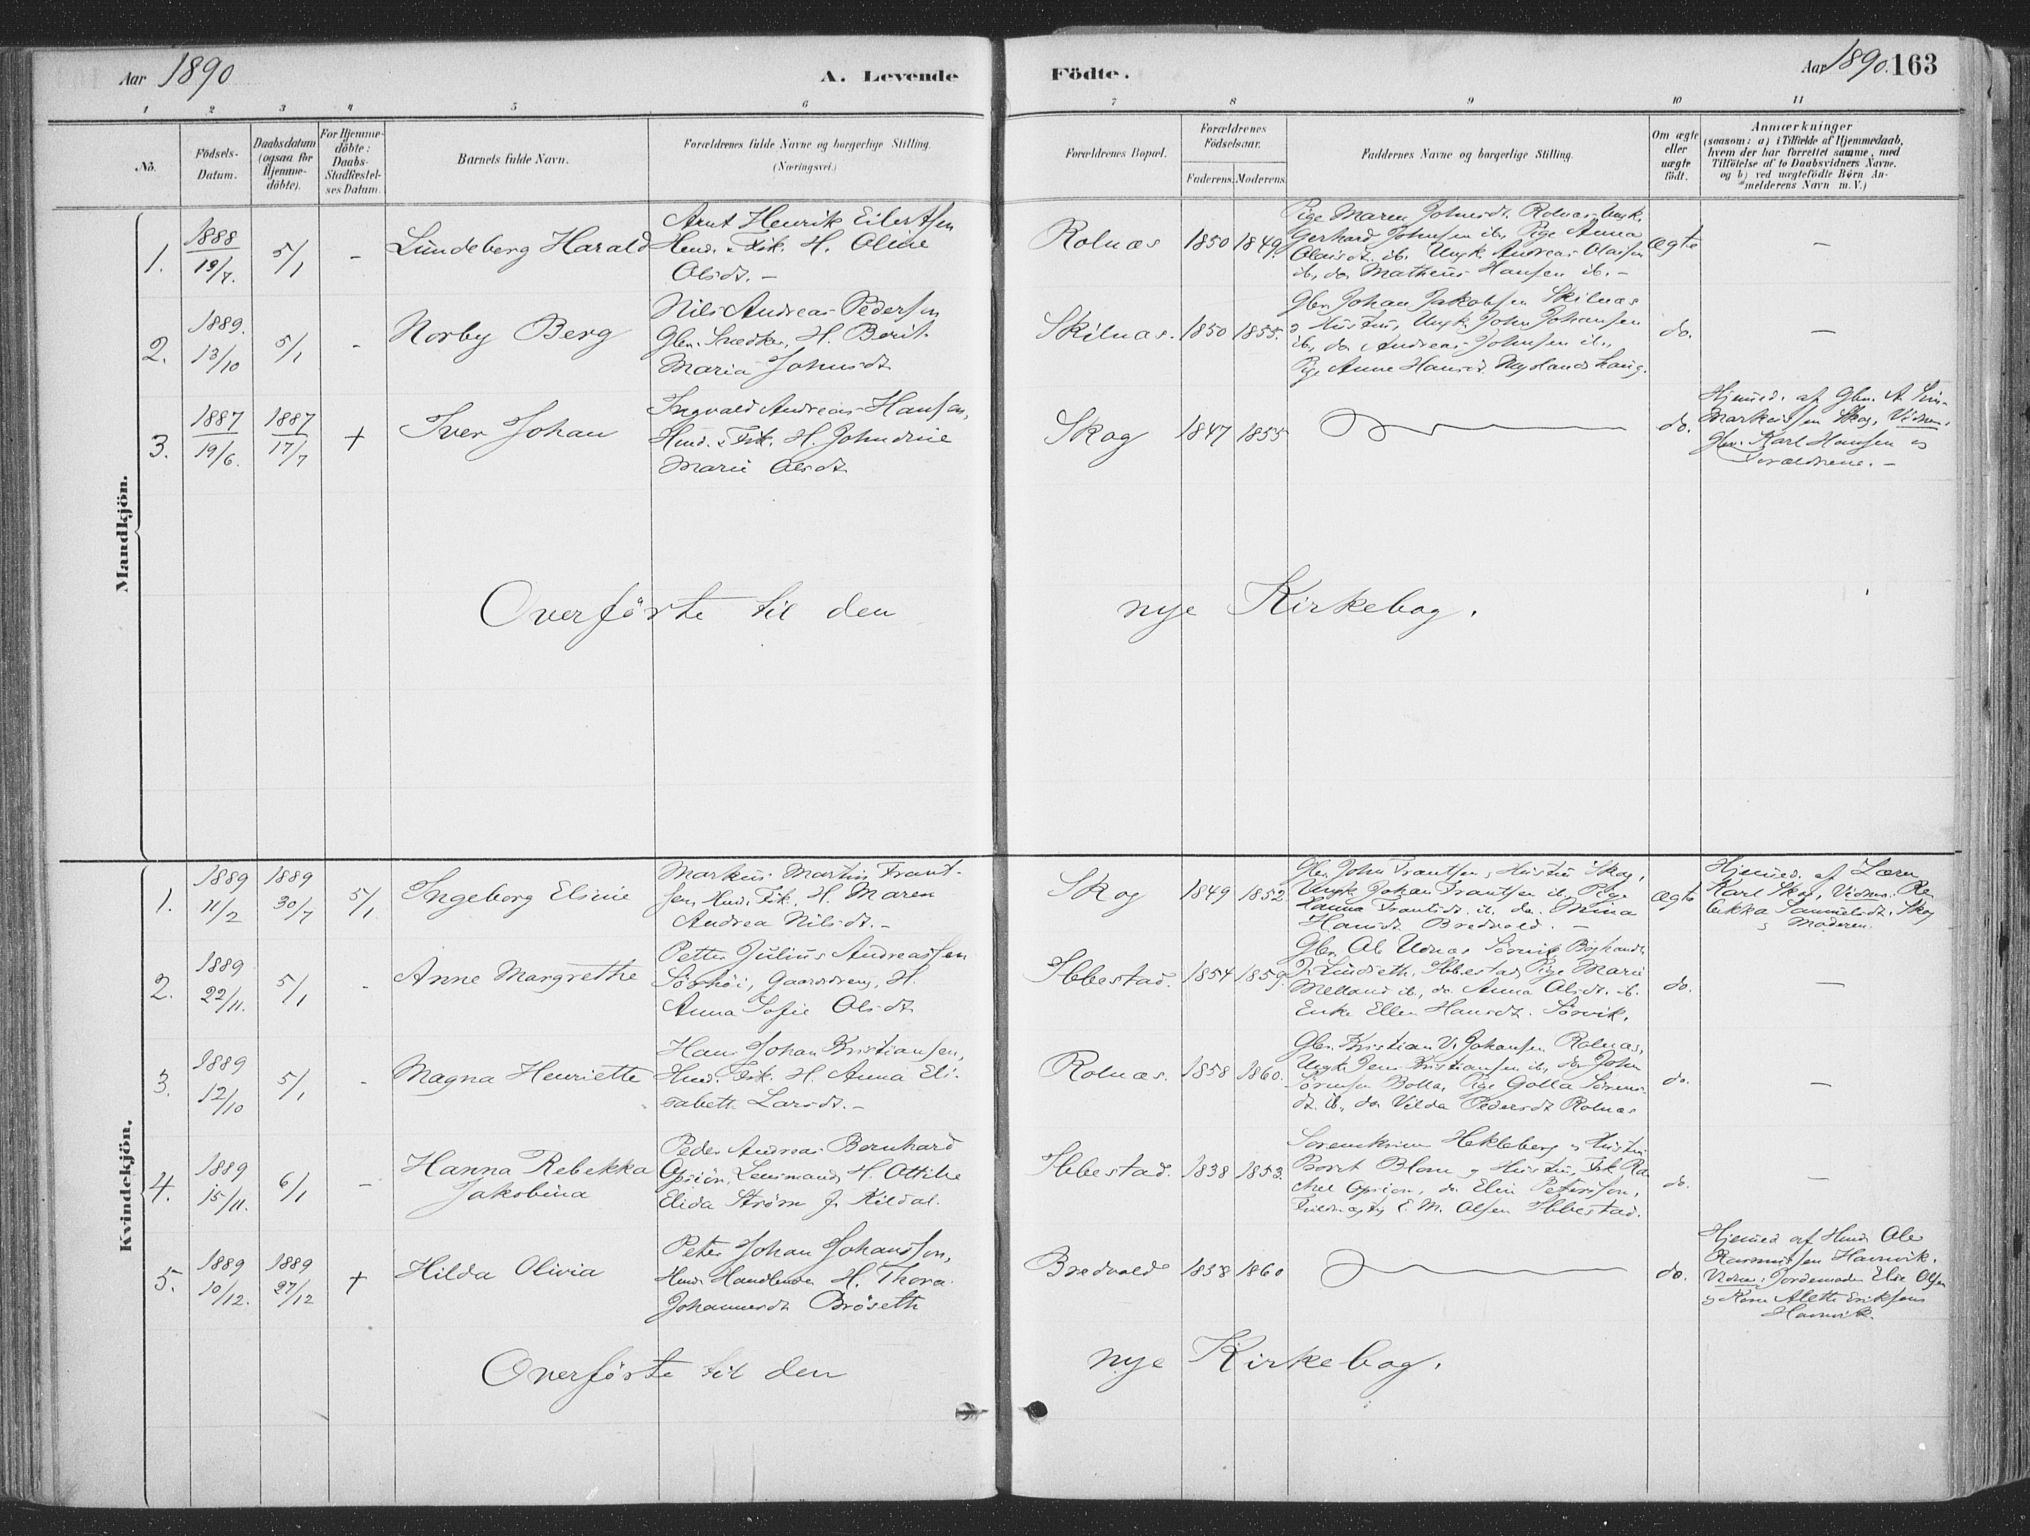 Aar 1890
A. Levende
Födte.
Aar 1890. 163
1 2 3 4 5 6 7 8 9 10 11
No.
Födsels-
Datum.
Daabsdatum
(ogsaa for
Hjemme-
döbte).
For Hjemme-
döbte:
Daabs-
Stadfæstel-
ses Datum.
Barnets fulde Navn.
Forældrenes fulde Navne og borgerlige Stilling.
(Næringsvei.)
Forældrenes Bopæl.
Forældrenes
Födselsaar.
Faderens. Moderens.
Faddernes Navne og borgerlige Stilling.
Om ægte
eller
uægte
födt.
Anmærkninger
(saasom: a) i Tilfælde af Hjemmedaab,
hvem der har forrettet samme, med
Tilföielse af to Daabsvidners Navne.
og b) ved uægtefödte Börn An-
melderens Navn m. V.)
Mandkjön.
1.
1888
19/7.
5/1
-
Lundeberg Harald
Arnt Henrik Eilertsen
Hmd. Fisk. H. Oline
Olsdt. -
Rolnæs
1850 1849.
Pige Maren Johnsdt. Rolnæs, Ungk.
Gerhard Johnsen ib, Pige Anna
Olaisdt. ib. Ungk. Andreas Olaisen
ib, do Matheus Hansen ib. -
ægte
-
2.
1889.
13/10
5/1
-
Norby Berg
Nils Andreas Pedersen
Gbr. Snedker, H. Berit
Maria Johnsdt
Skilnæs.
1850 1855.
Gbr. Johan Jakobsen Skilnæs
o Hustru, Ungk. John Johansen
ib, do Andreas Johnsen ib.,
Pige Anne Hansdt. Myklandshaug.
do.
-
3.
1887
19/6.
1887
17/7
+
Iver Johan
Ingvald Andreas Hansen,
Hmd. Fisk. H. Johndine
Marie Olsdt
Skog
1847 1855
do.
Hjemmed. af Gbr. A.
Markussen Skog, Vidner:
Gbr. Karl Hansen og
Forældrene. -
Overförte til den nye Kirkebog.
Kvindekjön.
1.
1889
11/2
1889
30/7
5/1
Ingeborg Elsine
Markus Martin Frant-
sen, Hmd. Fisk. H. Maren
Andrea Nilsdt. -
Skog
1849 1852
Gbr. John Frantsen, Hustru Skog,
Ungk Johan Frantsen ib, Pige
Hanna Frantsdt. ib. do. Mina
Hansdt Bredvold. -
ægte
Hjemmed. af Lærer
Karl Skog, Vidner: Re-
bekka Samuelsdt. Skog
o Moderen.
2.
1889.
22/11.
5/1
-
Anne Margrethe
Petter Julius Andreassen
Sörhöi, Gaardbrug, H.
Anna Sofie Olsdt
Ibbestad.
1854 1859.
Gbr. Ole Sörvik
J. Lindseth, Ibbestad, Pige Marie
Melland ib, do Anna Olsdt. ib.
Enke Ellen Hansdt. Sörvik.
do.
-
3.
1889
12/10
5/1
-
Magna Henriette
Hans Johan Kristiansen,
Hmd. Fisk. H. Anna Eli-
sabeth Larsdt. -
Rolnæs.
1858 1860.
Gbr. Kristian V. Johansen Rolnæs,
Ungk Jens Kristiansen ib, do John
Sörensen Bolla, Pige Golla Sörens-
dt. ib., do Vilda Pedersdt Rolnæs
do.
-
4.
1889
15/11.
6/1
-
Hanna Rebekka
Jakobina
Peder Andreas Bernhard
Oprion, Lensmand, H. Ottilie
Elida Ström f. Kildal.
Ibbestad.
1838 1853.
Sorenskriver Hekleberg o Hustru
Berit Blom o Hustru, Frk. Ra-
chel Oprion, do. Elin Peterson,
E. M. Olsen Ibbestad.
do.
-
5.
1889
10/12.
1889
27/12
+
Hilda Olivia
Peter Johan Johansen,
Hmd Handlende H. Thora
Johannesdt Bröseth
Bredvold
1838 1860
do.
Hjemmed af Hmd Ole
Rasmussen Hamvik.
Vidner: Jordemoder Else Olsen
o Kone Aleth Eriksens
Hamvik.
Overförte til den nye Kirkebog.